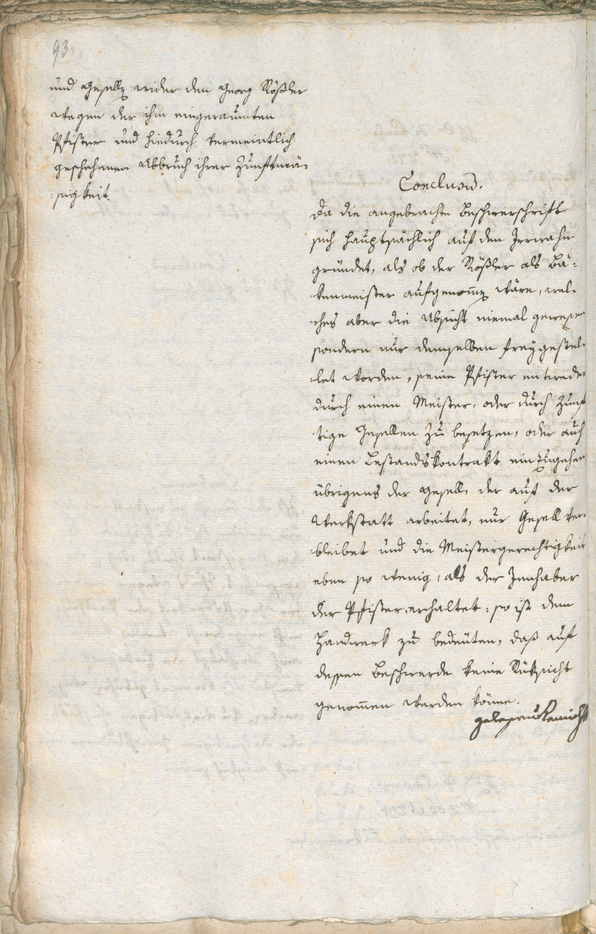 93
und Gesellen wider den Georg Rößler
wegen der ihm eingeraumten
Pfister und hiedurch vermeintlich
geschehenen Abbruch ihrer Zunftmäs-
:sigkeit.
Conclusum.
Da die angebrachte Beschwerschrift
sich hauptsächlich auf den Irrwahn
gründet, als ob der Rößler als Bä-
kenmeister aufgenommen wäre, wel-
ches aber die Absicht niemal gewesen
sondern nur demselben freygestel-
let worden, seine Pfister entweder
durch einen Meister, oder durch zunf-
tige Gesellen zu besetzen, oder auch
einen Bestandskontrakt einzugehen
übrigens der Gesell, der auf der
Werkstatt arbeitet, nur Gesell ver-
bleibet und die Meistergerechtigkeit
eben so wenig, als der Innhaber
der Pfister erhaltet: so ist dem
Handwerk zu bedeuten, daß auf
dessen Beschwerde keine Rüksicht
genommen werden könne.